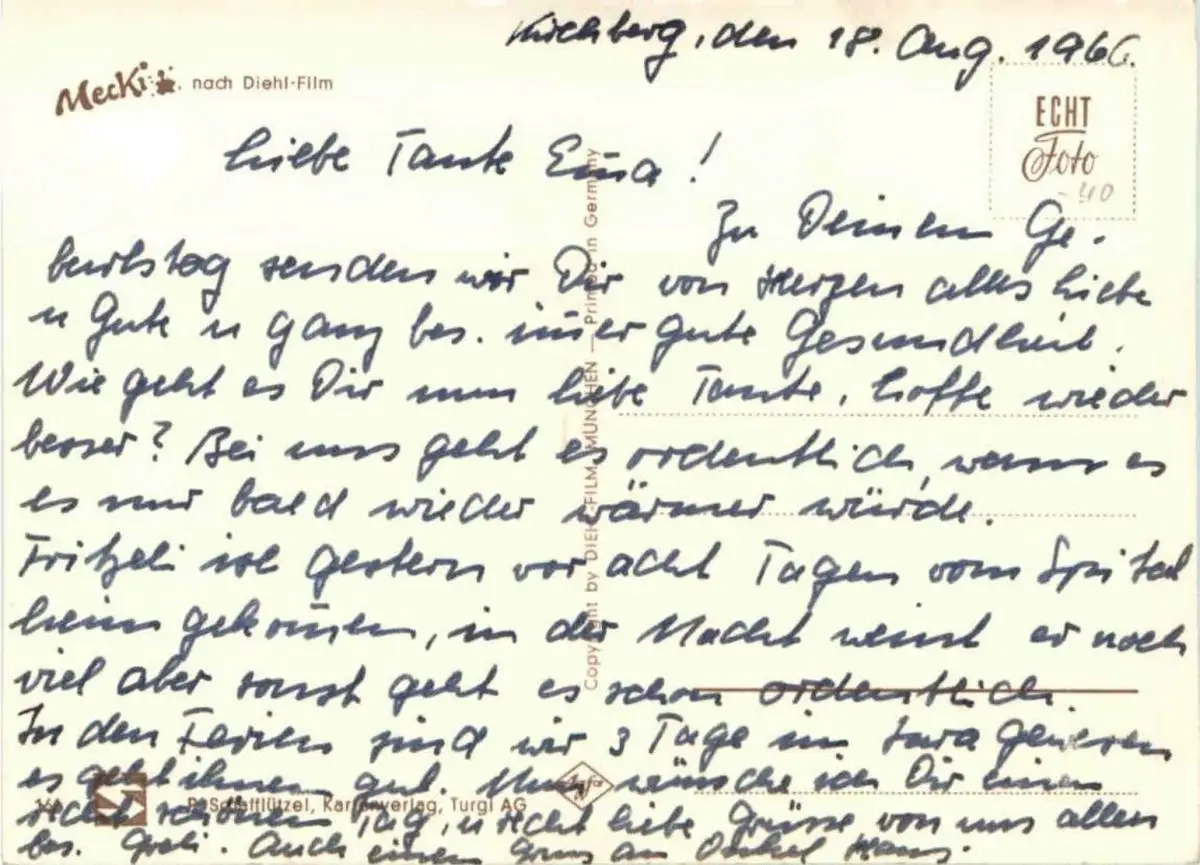 Kirchberg, den 18. Aug. 1966.
Mecki nach Diehl-Film
ECHT
Foto
-40
Liebe Tante Em̄a!
Zu Deinem Ge-
burtstag senden wir Dir von Herzen alles Liebe
u Gute u ganz bes. im̄er gute Gesundheit.
Wie geht es Dir nun liebe Tante, hoffe wieder
besser? Bei uns geht es ordentlich, wenn es
es nur bald wieder wärmer würde.
Fritzli ist gestern vor acht Tagen vom Spital
heim gekom̄en, in der Nacht weint er noch
viel aber sonst geht es schon ordentlich.
In den Ferien sind wir 3 Tage im Jura gewesen
es geht ihnen gut. Nun wünsche ich Dir einen
recht schönen Tag, u recht liebe Grüsse von uns allen
bes. Greti. Auch einen Gruss an Onkel Hans.
Copyright by DIEHL-FILM, MÜNCHEN — Printed in Germany
Kartenverlag, Turgi AG